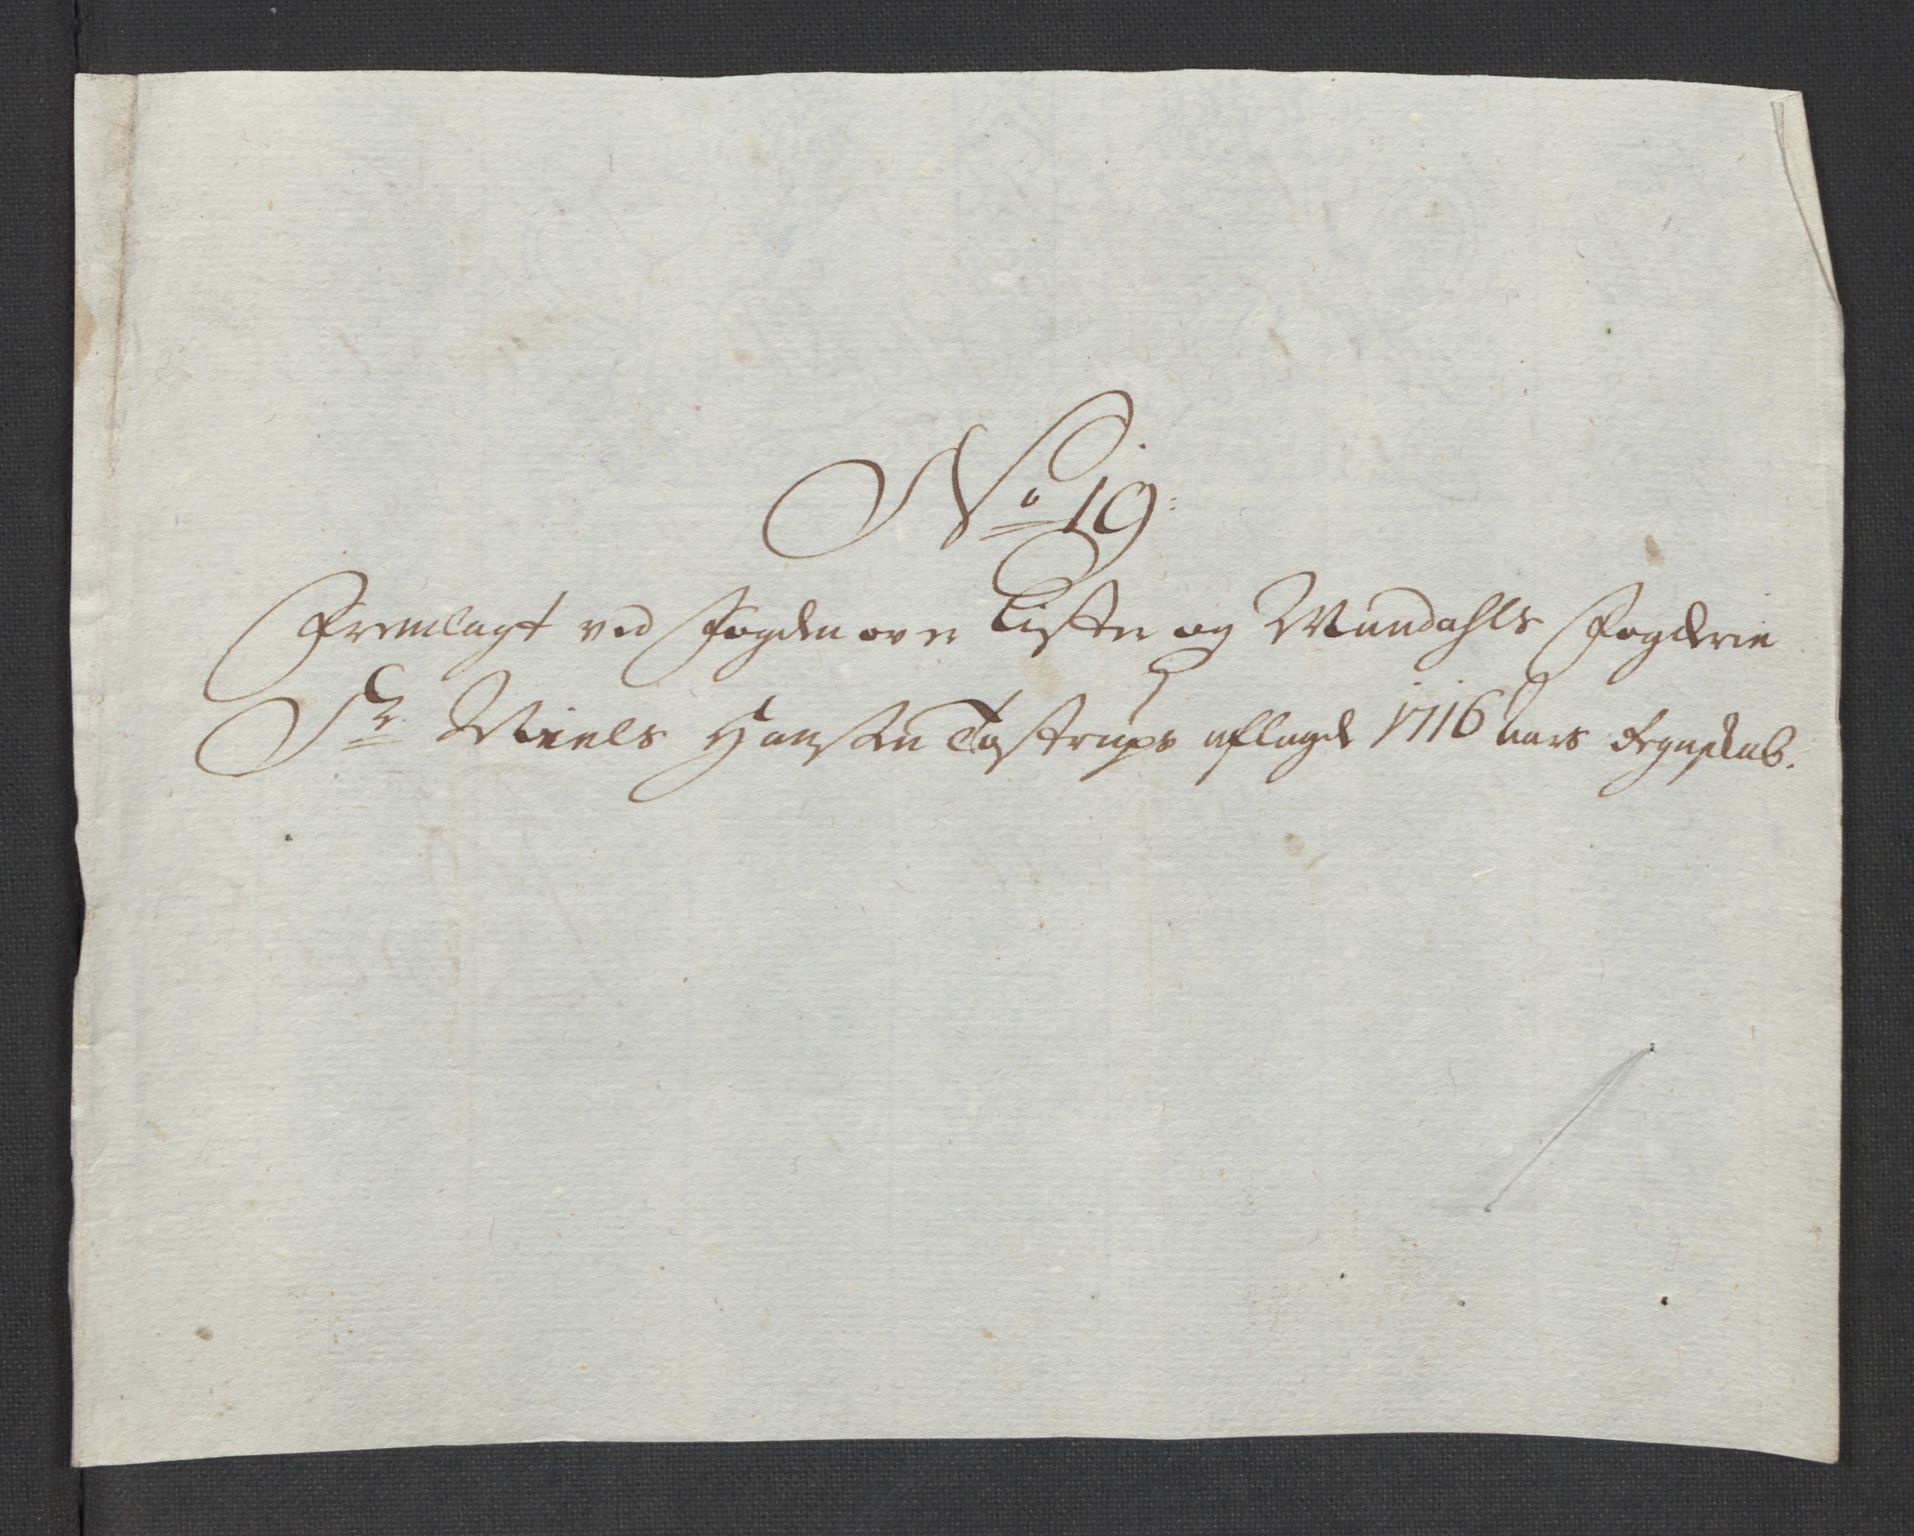 No 19:
Fremlagt ved Fogden over Lister og Mandahls Fogderie
Sr. Niels Hansen Tostrups aflagde 1716 aars Regnskab.